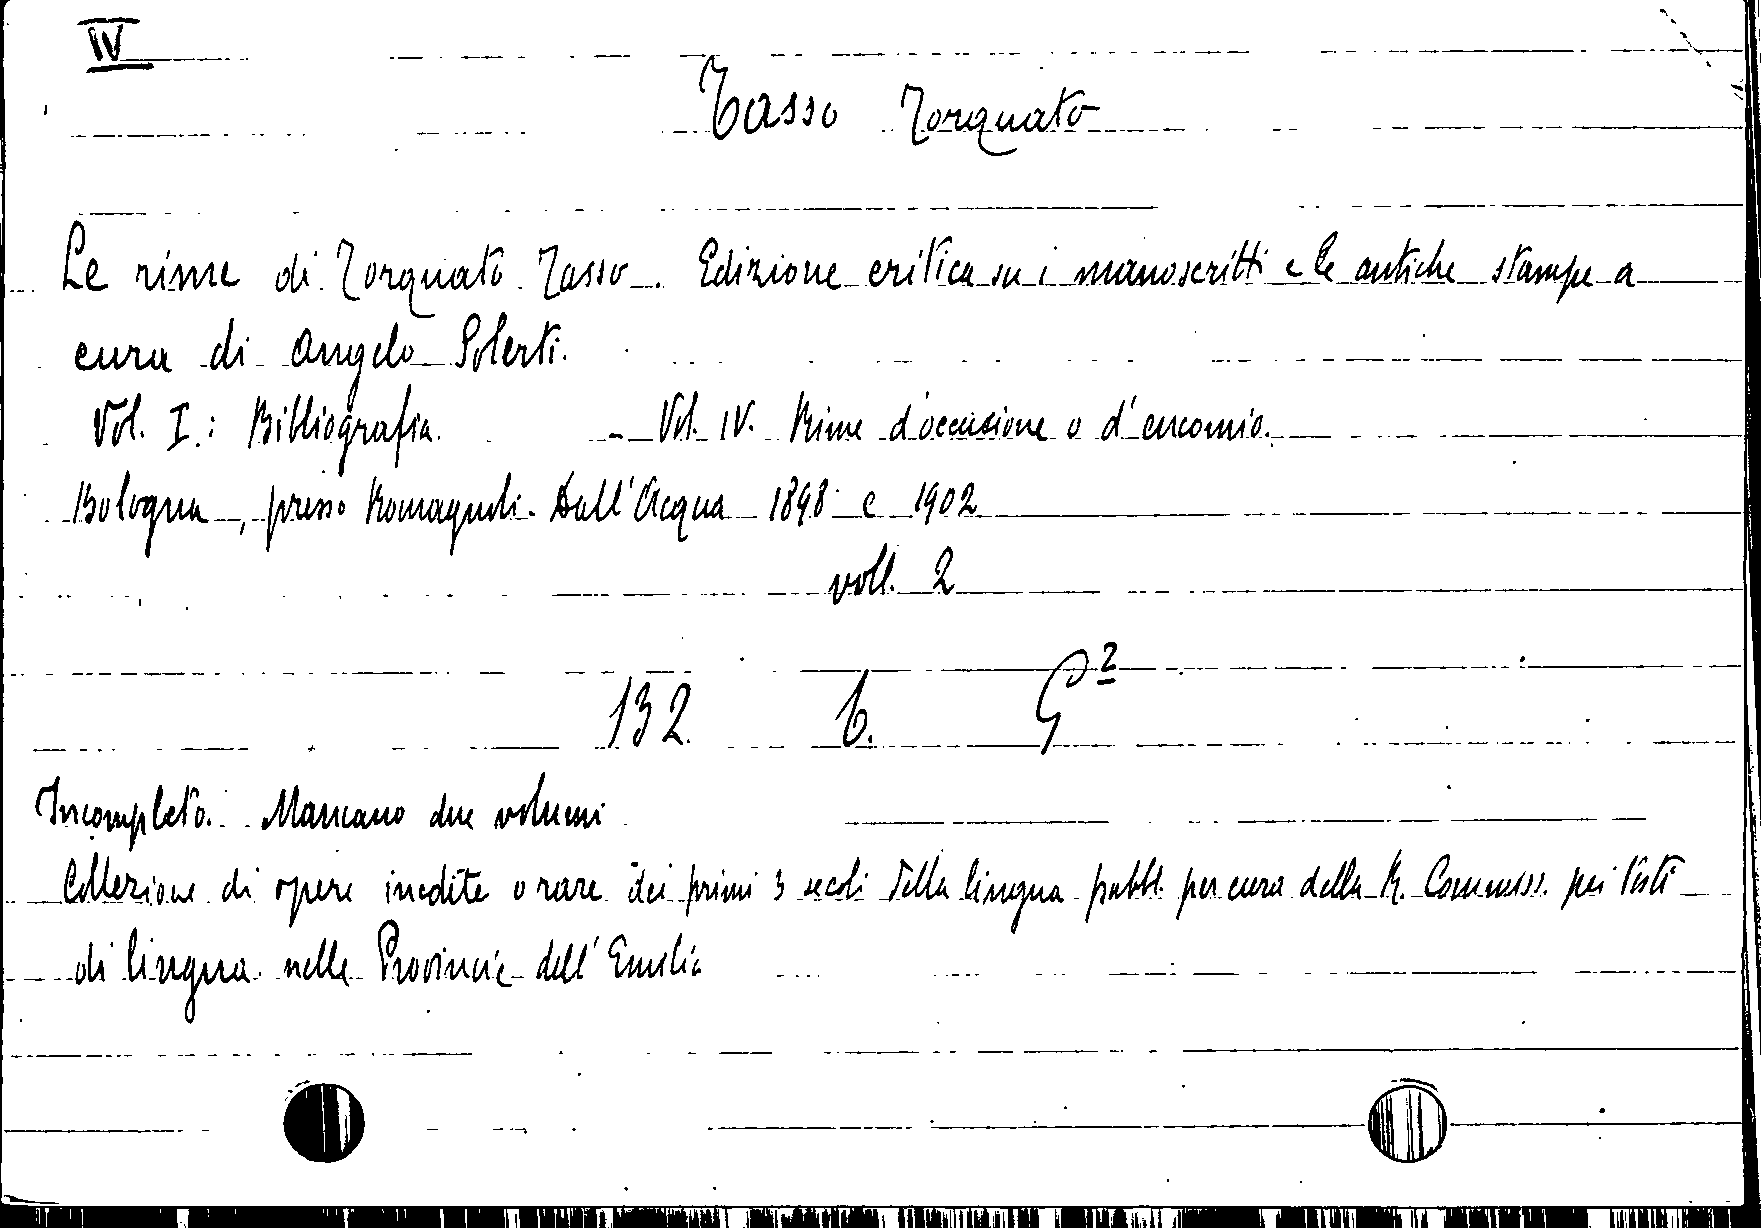 IV
Tasso Torquato
Le rime di Torquato Tasso. Edizione critica su i manoscritti e le antiche stampe a
cura di Angelo Solerti.
Vol. I.: Bibliografia. - Vol. IV. Rime d'occasione o d'encomio.
Bologna, presso Romagnoli-Dall'Acqua 1898 e 1902
voll. 2
132 b. 2
Incompleto. Mancano due volumi
Collezione di opere inedite o rare dei primi 3 secoli della lingua pubbl. per cura della R. Commiss. pei Testi
di lingua nelle Provincie dell'Emilia